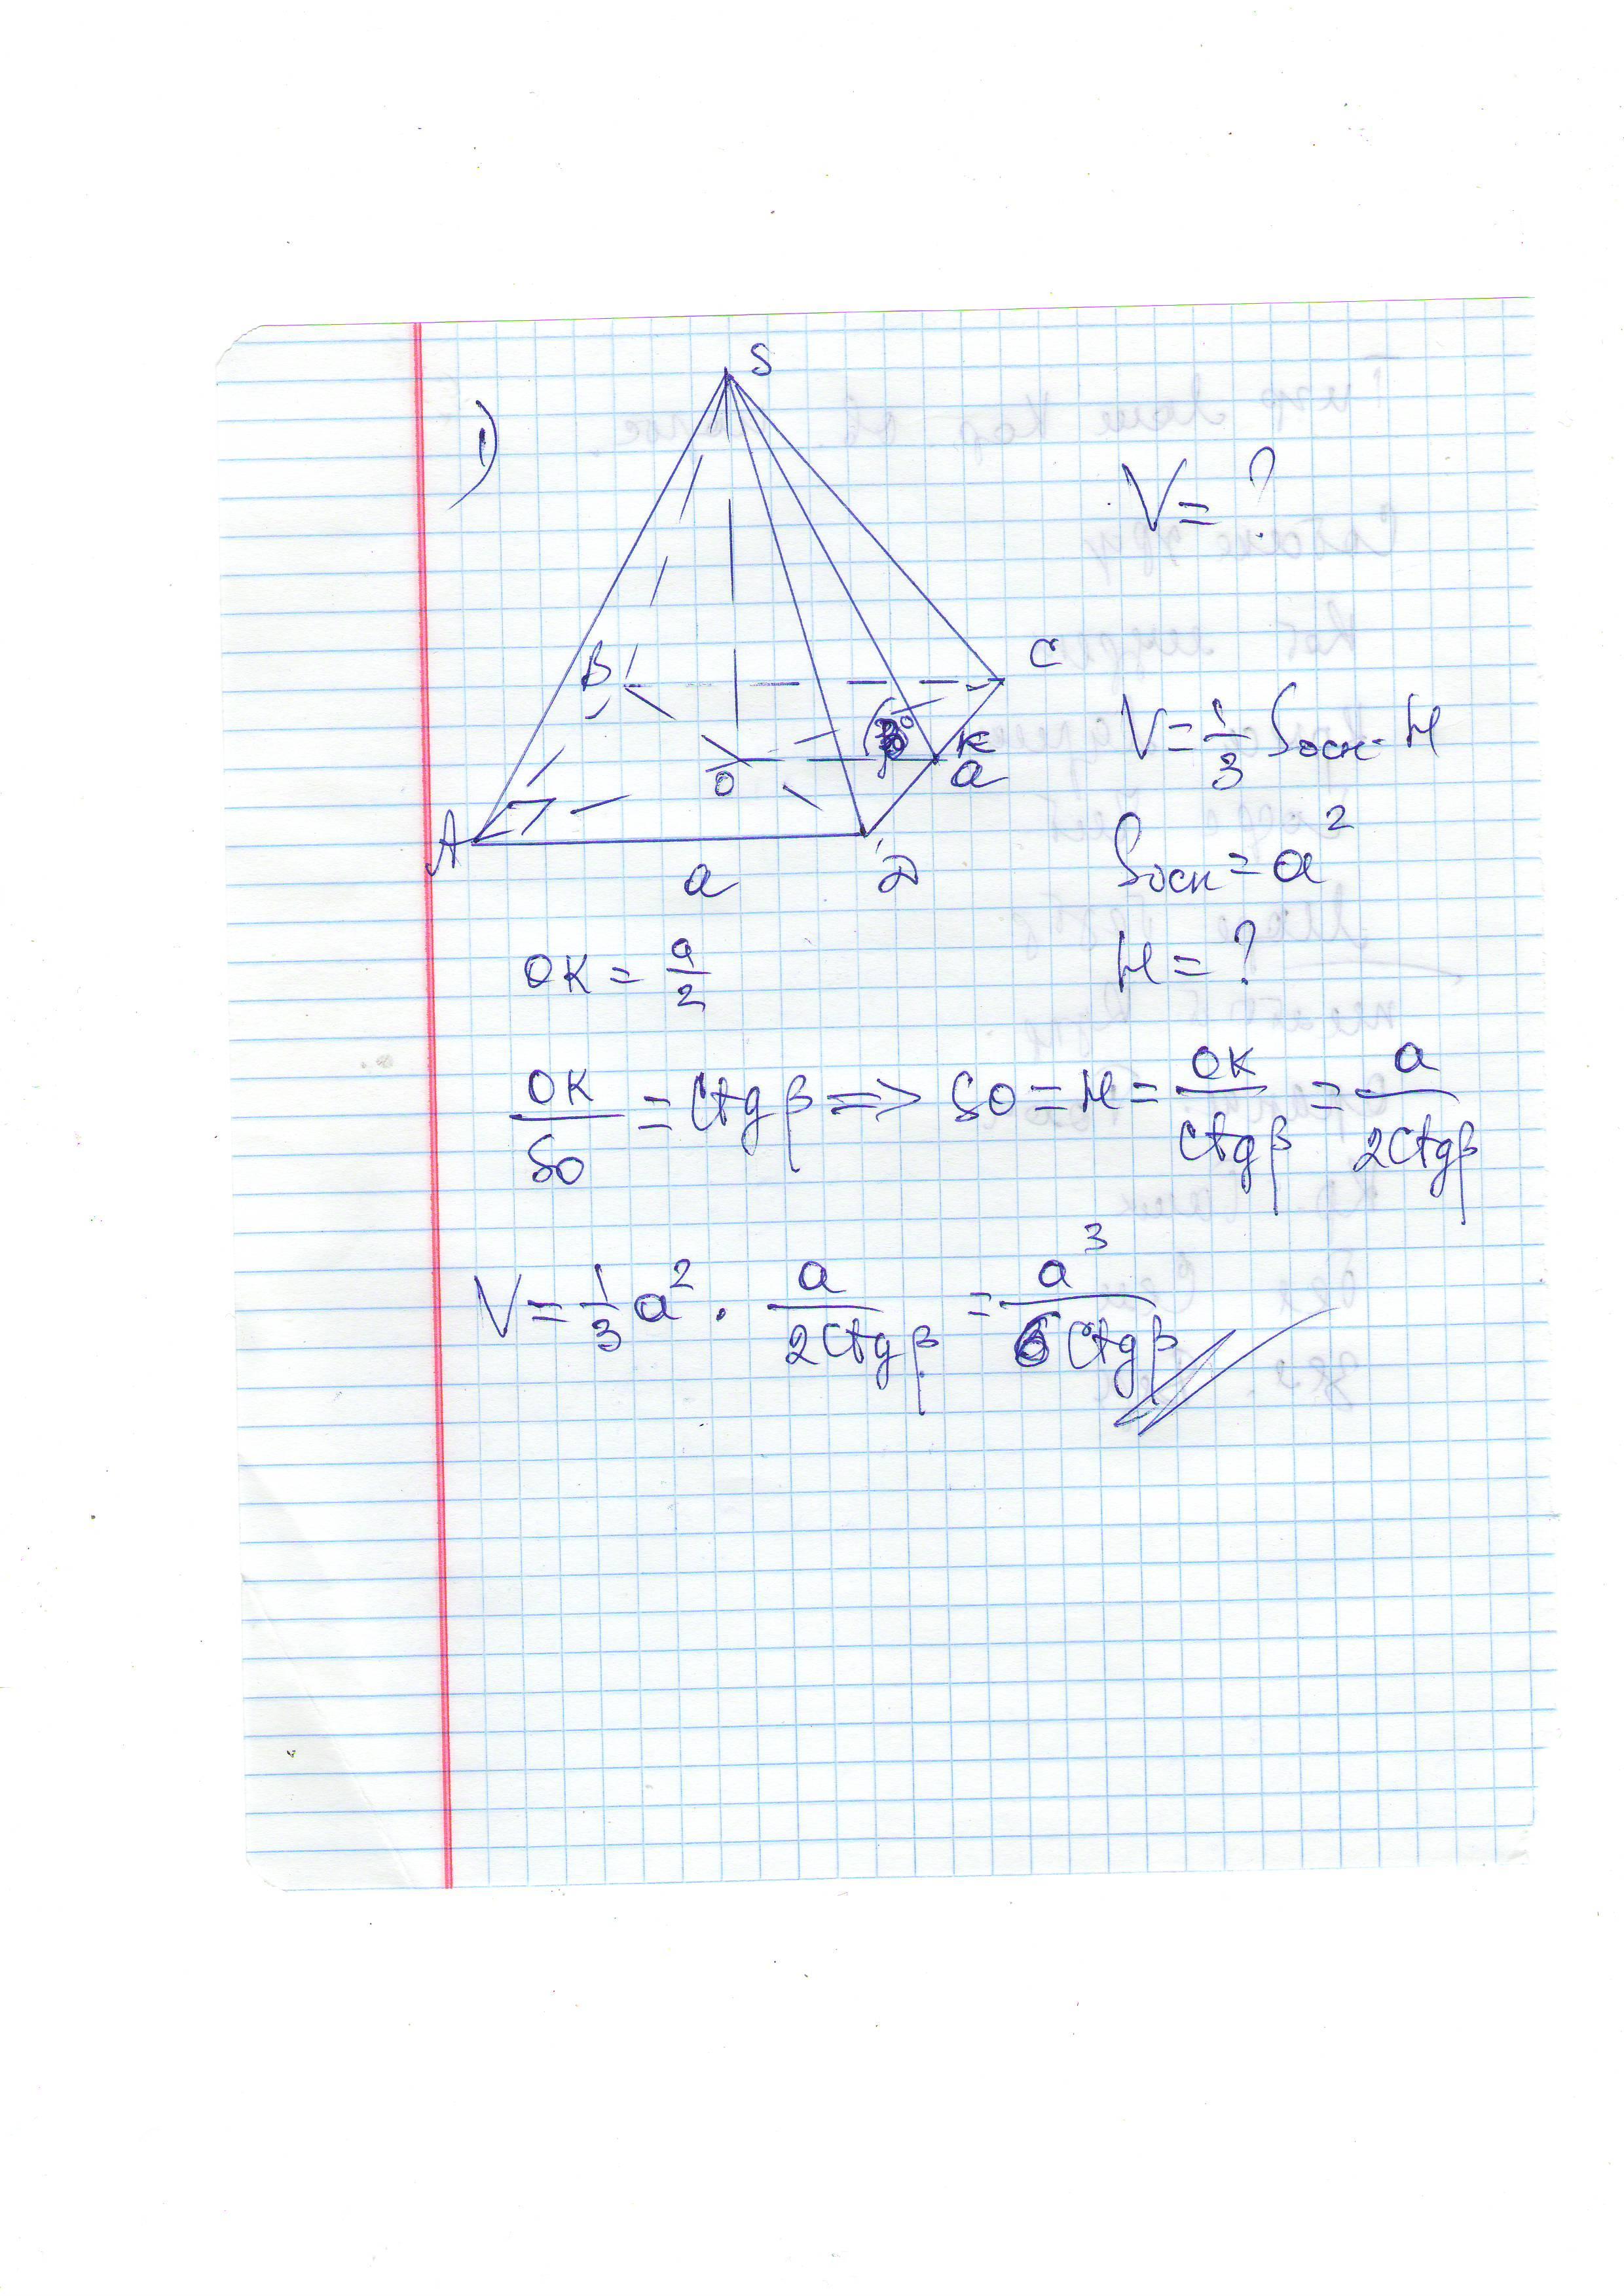 1)
S
V = ?
B
C
β
K
O
a
V = 1/3 Sосн · H
A
a
D
Sосн = a²
OK = a/2
H = ?
OK/SO = ctg β => SO = H = OK/ctg β = a/2ctg β
V = 1/3 a² · a/2ctg β = a³/6ctg β